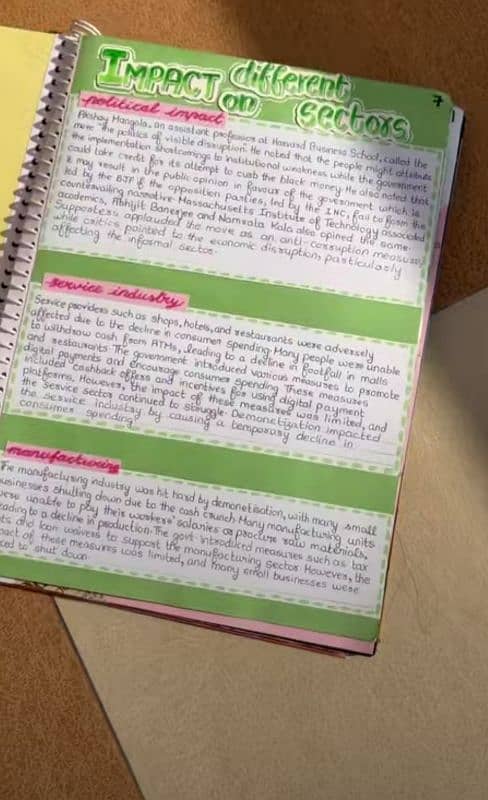 IMPACT different
on sectors
7
political impact
Akshay Mangala, an assistant professor at Harvard Business School, called the
move "the politics of visible disruption". He noted that the people might attribute
the implementation shortcomings to institutional weakness while the government
could take credit for its attempt to curb the black money. He also noted that
it may result in the public opinion in favour of the government which is
led by the BJP if the opposition parties, led by the INC, fail to form the
countervailing narrative. Massachusetts Institute of Technology associated
academics, Abhijit Banerjee and Namrata Kala also opined the same.
Supporters applauded the move as an anti-corruption measure,
while critics pointed to the economic disruption, particularly
affecting the informal sector.
service industry
Service providers such as shops, hotels, and restaurants were adversely
affected due to the decline in consumer spending. Many people were unable
to withdraw cash from ATMs, leading to a decline in footfall in malls
and restaurants. The government introduced various measures to promote
digital payments and encourage consumer spending. These measures
included cashback offers and incentives for using digital payment
platforms. However, the impact of these measures was limited, and
the Service sector continued to struggle. Demonetization impacted
the service industry by causing a temporary decline in
consumer spending.
manufactioring
The manufacturing industry was hit hard by demonetisation, with many small
businesses shutting down due to the cash crunch. Many manufacturing units
were unable to pay their workers' salaries or procure raw materials,
eading to a decline in production. The govt introduced measures such as tax
ts and loan waivers to support the manufacturing sector. However, the
pact of these measures was limited, and many small businesses were
ced to shut down.